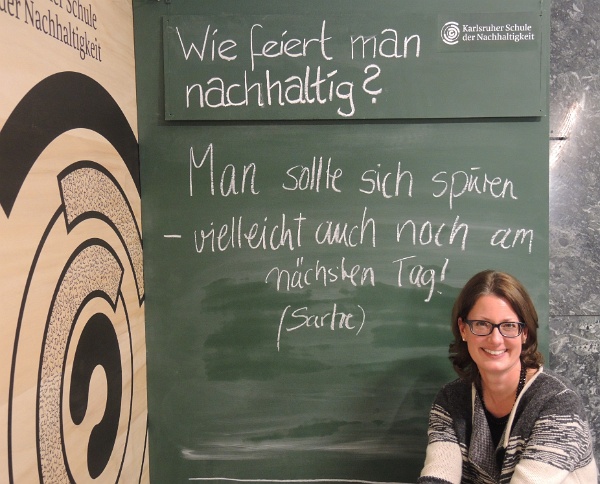 Karlsruher Schule
der Nachhaltigkeit
Karlsruher Schule
der Nachhaltigkeit
Wie feiert man
nachhaltig?
Man sollte sich spüren
– vielleicht auch noch am
nächsten Tag!